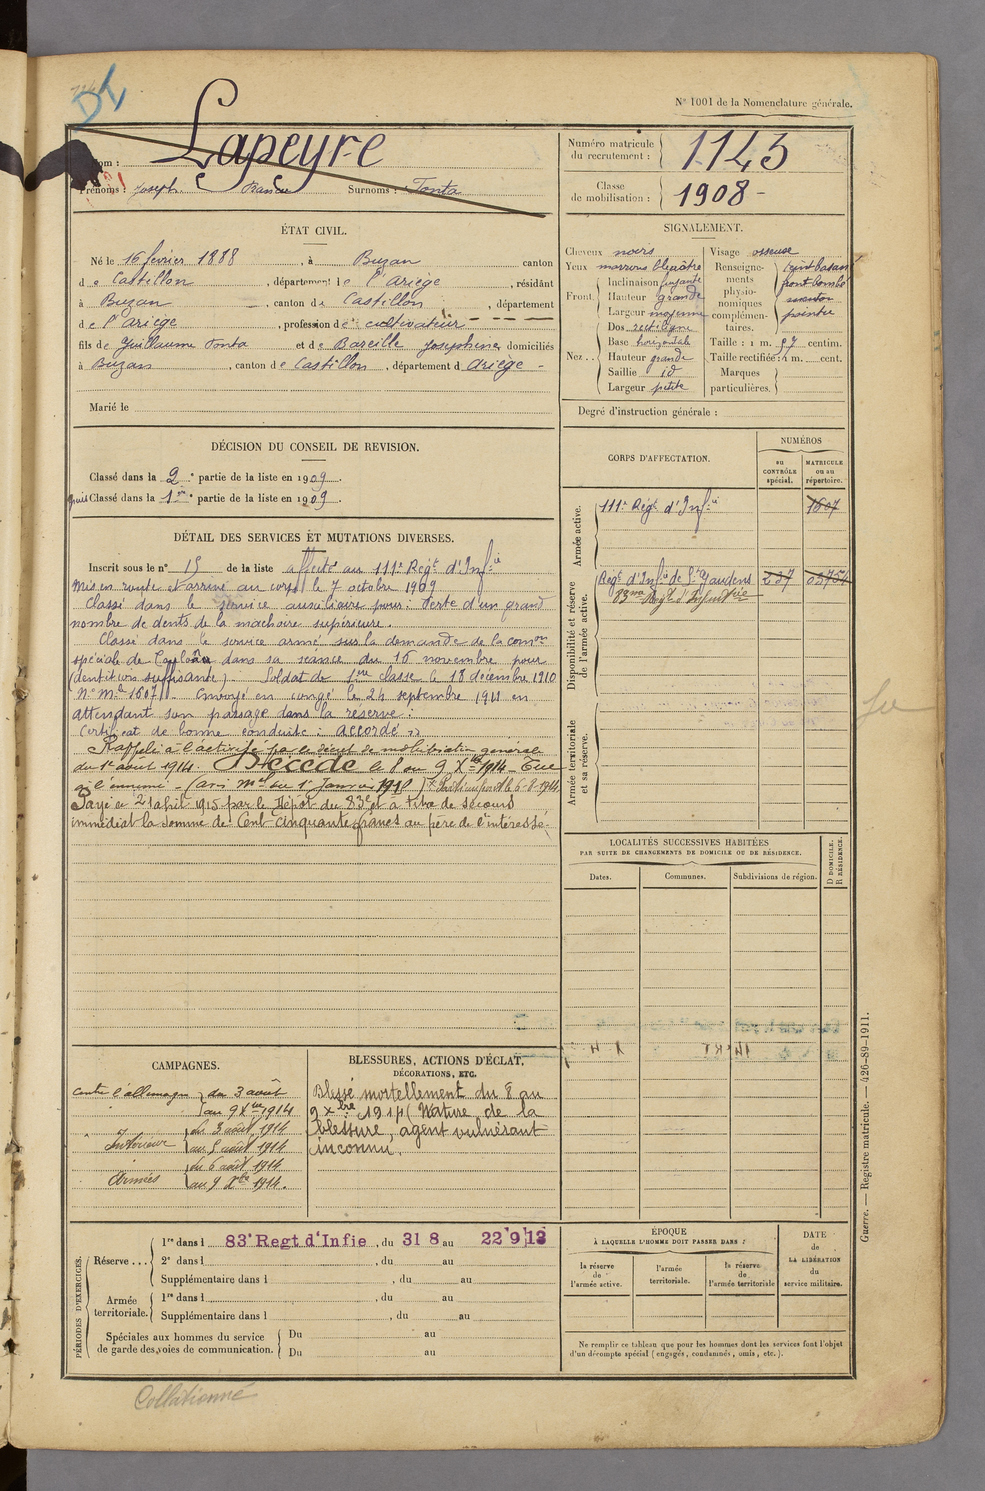 N° 1001 de la Nomenclature générale.
Nom : Lapeyre
Prénoms : Joseph Surnoms : Tonta
Numéro matricule du recrutement : 1143
Classe de mobilisation : 1908 -
ÉTAT CIVIL.
Né le 16 février 1888, à Buzan canton
de Castillon, département de l'Ariège, résidant
à Buzan, canton de Castillon, département
de l'Ariège, profession de cultivateur
fils de Guillaume Tonta et de Bareille Josephine, domiciliés
à Buzan, canton de Castillon, département d Ariège -
Marié le
SIGNALEMENT.
Cheveux noirs
Yeux marrons bleuâtre
Front Inclinaison fuyante
Hauteur grande
Largeur moyenne
Nez Dos rectiligne
Base horizontale
Hauteur grande
Saillie id
Largeur petite
Visage osseux
Renseignements physionomiques complémentaires. teint basané
front bombé
menton
pointu
Taille : 1 m. 57 centim.
Taille rectifiée : 1 m. cent.
Marques particulières.
Degré d'instruction générale :
DÉCISION DU CONSEIL DE REVISION.
Classé dans la 2e partie de la liste en 1909.
puis Classé dans la 1re partie de la liste en 1909.
CORPS D'AFFECTATION.
NUMÉROS
au CONTRÔLE spécial.
MATRICULE ou au répertoire.
Armée active.
111e Régt d'Infie 1607
Disponibilité et réserve de l'armée active.
Régt d'Infie de St Gaudens 237 03754
83me Regt d'Infanterie
Armée territoriale et sa réserve.
DÉTAIL DES SERVICES ET MUTATIONS DIVERSES.
Inscrit sous le n° 15 de la liste affecté au 111e Régt d'Infie
Mis en route et arrivé au corps le 7 octobre 1909
Classé dans le service auxiliaire pour : Perte d'un grand
nombre de dents de la machoire supérieure.
Classé dans le service armé sur la demande de la comon
spéciale de Toulon dans sa séance du 16 novembre pour
(dentition suffisante). Soldat de 1ère classe le 18 décembre 1910
N° Mle 1607. Envoyé en congé le 24 septembre 1911 en
attendant son passage dans la réserve.
Certificat de bonne conduite : accordé
Rappelé à l'activité par le décret de mobilisation générale
du 1er août 1914. Décédé le 8 au 9 Xbre 1914 - Tué
à l'ennemi - (avis Mel du 1er Janvier 1915) Parti au front le 6-8-1914
Payé le 21 abril 1915 par le Dépôt du 83e et à titre de secours
immédiat la somme de Cent cinquante francs au père de l'intéressé
LOCALITÉS SUCCESSIVES HABITÉES
PAR SUITE DE CHANGEMENTS DE DOMICILE OU DE RÉSIDENCE.
Dates. Communes. Subdivisions de région. D DOMICILE. R RÉSIDENCE.
CAMPAGNES.
Contre l'allemagne du 3 août
au 9 Xbre 1914
Intérieur du 3 août 1914
au 5 août 1914
Armées du 6 août 1914
au 9 Xbre 1914.
BLESSURES, ACTIONS D'ÉCLAT,
DÉCORATIONS, ETC.
Blessé mortellement du 8 au
9 Xbre 1914 (Nature de la
blessure, agent vulnérant
inconnu.
PÉRIODES D'EXERCICES.
Réserve... 1re dans l 83e Regt d'Infie, du 31 8 au 22 9 13
2e dans l , du au
Supplémentaire dans l , du au
Armée territoriale. 1re dans l , du au
Supplémentaire dans l , du au
Spéciales aux hommes du service de garde des voies de communication. Du au
Du au
ÉPOQUE
À LAQUELLE L'HOMME DOIT PASSER DANS :
la réserve de l'armée active.
l'armée territoriale.
la réserve de l'armée territoriale
DATE de LA LIBÉRATION du service militaire.
Ne remplir ce tableau que pour les hommes dont les services font l'objet
d'un décompte spécial (engagés, condamnés, omis, etc.).
Guerre. — Registre matricule. — 426-89-1911.
Collationné